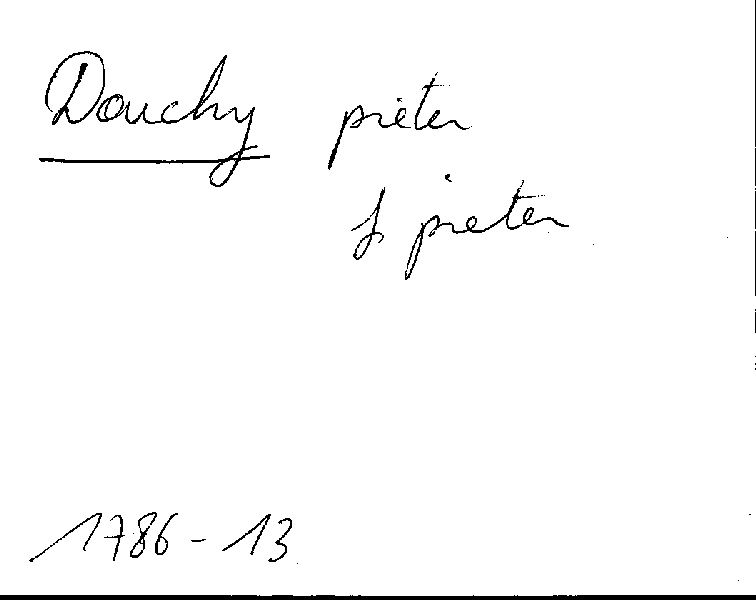 Douchy pieter
f pieter
1786-13